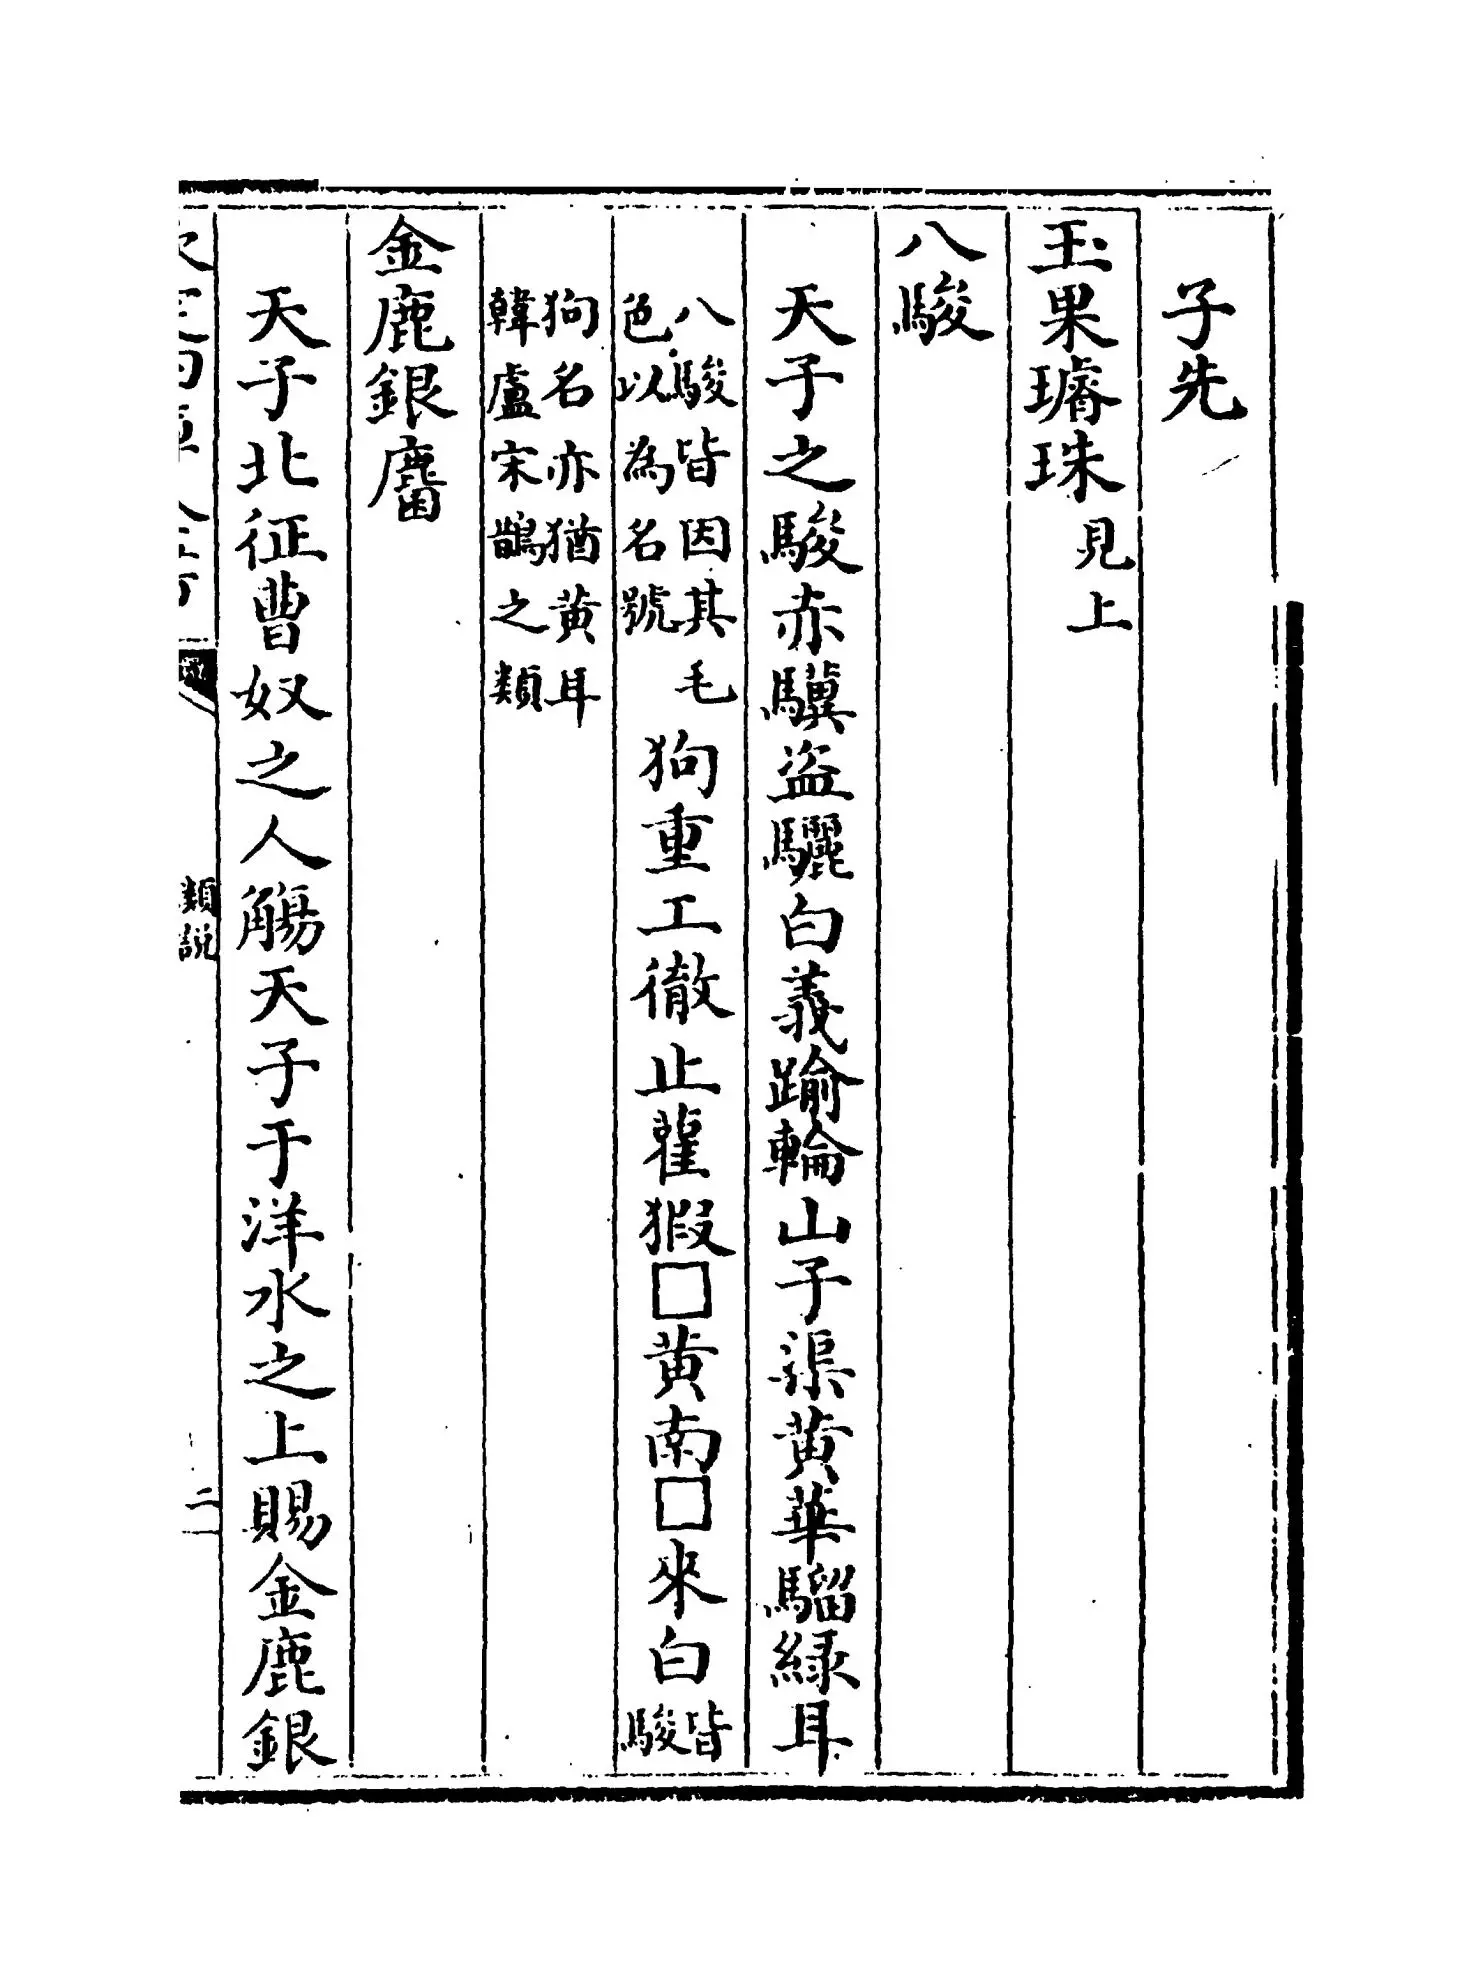 子先
玉果璿珠見上
八駿
天子之駿赤驥盜驪白義踰輪山子渠黃華騮綠耳
八駿皆因其毛
色以為名號
狗重工徹止雚猳□黃南□來白
皆
駿
狗名亦猶黃耳
韓盧宋鵲之類
金鹿銀麕
天子北征曹奴之人觴天子于洋水之上賜金鹿銀
類說
二